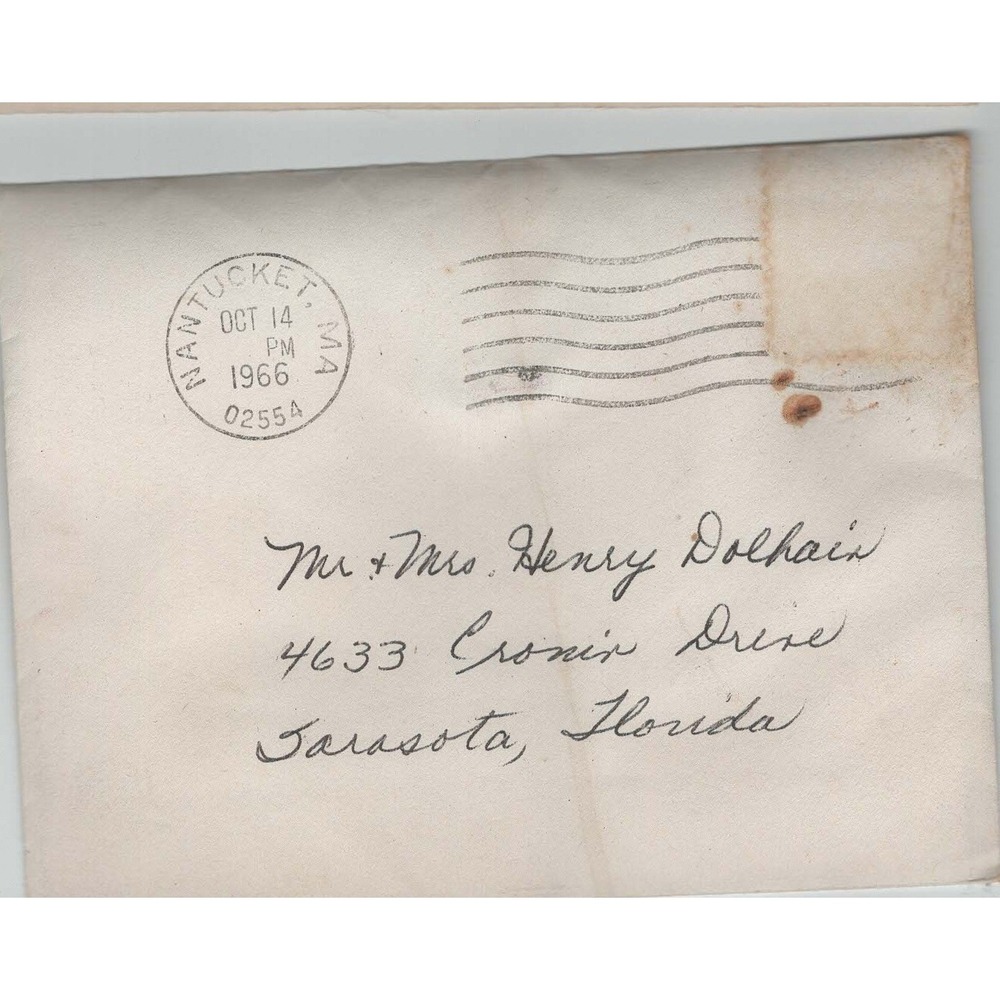 NANTUCKET, MA
OCT 14
PM
1966
02554
Mr. & Mrs. Henry Dolhain
4633 Cronin Drive
Sarasota, Florida